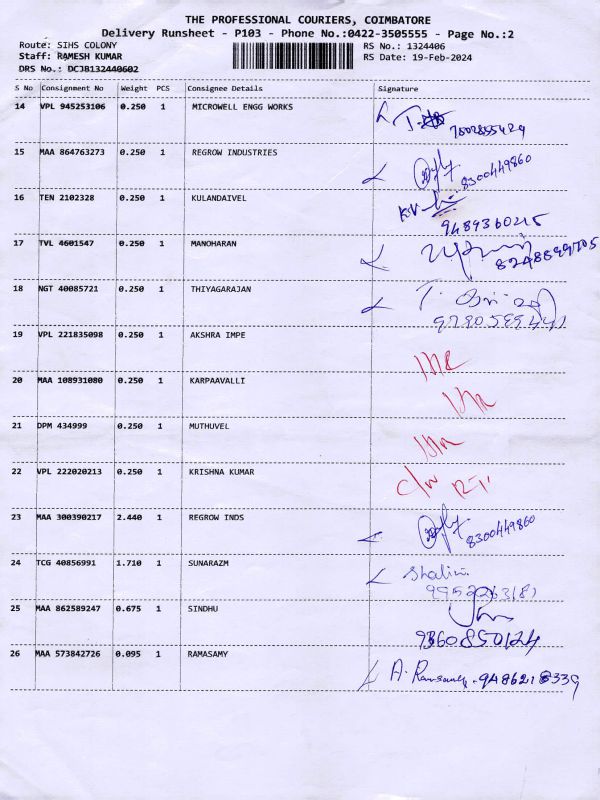 THE PROFESSIONAL COURIERS, COIMBATORE
Delivery Runsheet - P103 - Phone No.:0422-3505555 - Page No.:2
Route: SIHS COLONY
Staff: RAMESH KUMAR
DRS No.: DCJB132440602
RS No.: 1324406
RS Date: 19-Feb-2024
S No Consignment No Weight PCS Consignee Details Signature
14 VPL 945253106 0.250 1 MICROWELL ENGG WORKS
7502855429
15 MAA 864763273 0.250 1 REGROW INDUSTRIES
8300449860
16 TEN 2102328 0.250 1 KULANDAIVEL
K.V
9489360215
17 TVL 4601547 0.250 1 MANOHARAN
18 NGT 40085721 0.250 1 THIYAGARAJAN
19 VPL 221835098 0.250 1 AKSHRA IMPE
20 MAA 108931080 0.250 1 KARPAAVALLI
21 DPM 434999 0.250 1 MUTHUVEL
22 VPL 222020213 0.250 1 KRISHNA KUMAR
23 MAA 300390217 2.440 1 REGROW INDS
8300449860
24 TCG 40856991 1.710 1 SUNARAZM
Shalini
25 MAA 862589247 0.675 1 SINDHU
9360850124
26 MAA 573842726 0.095 1 RAMASAMY A. Ramsamy - 9486218339